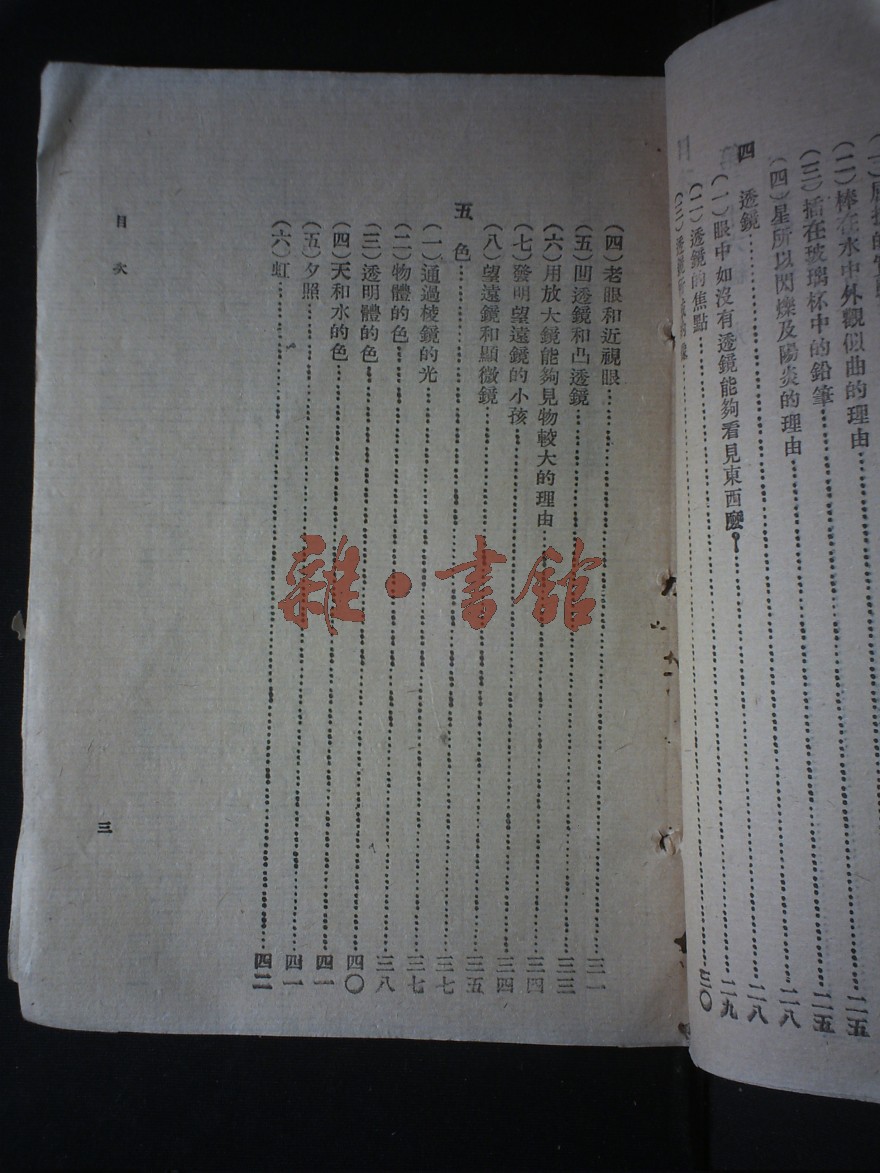 (二)棒在水中外觀似曲的理由……二五
(三)插在玻璃杯中的鉛筆……二五
(四)星所以閃爍及陽炎的理由……二八
四 透鏡……二八
(一)眼中如沒有透鏡能夠看見東西麼……二九
(二)透鏡的焦點……三〇
(四)老眼和近視眼……三一
(五)凹透鏡和凸透鏡……三三
(六)用放大鏡能夠見物較大的理由……三四
(七)發明望遠鏡的小孩……三四
(八)望遠鏡和顯微鏡……三五
五 色……三七
(一)通過棱鏡的光……三七
(二)物體的色……三八
(三)透明體的色……四〇
(四)天和水的色……四一
(五)夕照……四一
(六)虹……四二
目次
三
雜·書館